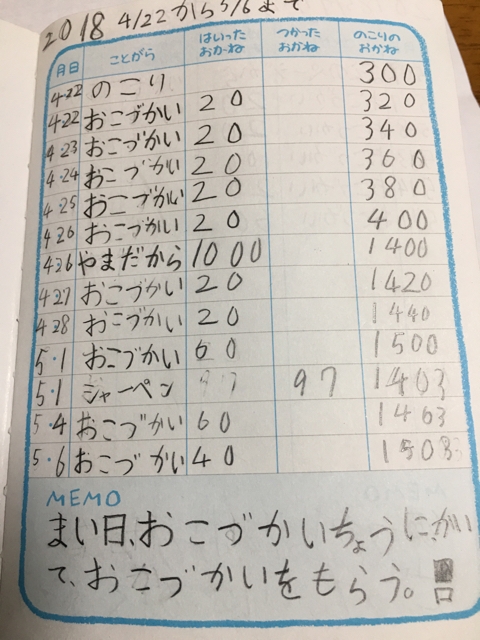 2018 4/22から5/6まで
月日 ことがら はいった おかね つかった おかね のこりの おかね
4・22 のこり 300
4・22 おこづかい 20 320
4・23 おこづかい 20 340
4・24 おこづかい 20 360
4・25 おこづかい 20 380
4・26 おこづかい 20 400
4・26 やまだから 1000 1400
4・27 おこづかい 20 1420
4・28 おこづかい 20 1440
5・1 おこづかい 60 1500
5・1 シャーペン 97 1403
5・4 おこづかい 60 1463
5・6 おこづかい 40 1503
MEMO
まい日、おこづかいちょうにかい
て、おこづかいをもらう。